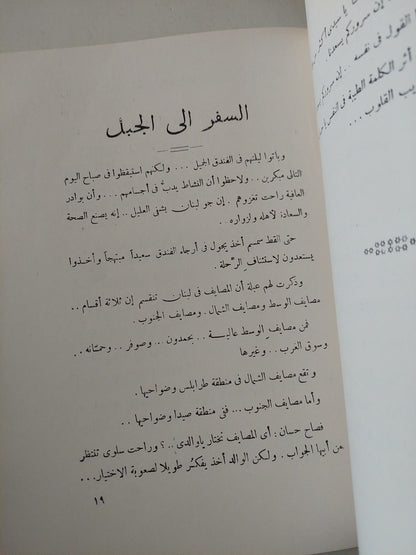 السفر الى الجبل
وباتوا ليلتهم في الفندق الجميل ... ولكنهم استيقظوا في صباح اليوم
التالي مبكرين .. ولاحظوا أن النشاط يدب في أجسامهم ... وأن بوادر
العافية راحت تغزوهم . إن جو لبنان يشفي العليل .. إنه يصنع الصحة
والسعادة لاهله وازواره ..
حتى القط سمسم أخذ يجول في أرجاء الفندق سعيداً مبتهجاً وأخذوا
يستعدون لاستئناف الرّحلة.
وذكرت لهم عبلة أن المصايف في لبنان تنقسم إن ثلاثة أقسام ..
مصايف الوسط ومصايف الشمال . ومصايف الجنوب .
فمن مصايف الوسط عاليـة .. بحمدون .. وصوفر .. وحمّانه ..
وسوق الغرب .. وغيرها
وتقع مصايف الشمال في منطقة طرابلس وضواحيها .
وأما مصايف الجنوب ... ففي منطقة صيدا وضواحيها .
فصاح حسان : أي المصايف نختار ياوالدي .. ؟ وراحت سلوى تنتظر
من أبيها الجواب . ولكن الوالد أخذ يفكّر طويلا لصعوبة الاختيار ...
١٩
القول في نفسه ..
أثر الكلمة الطيبة في
القلوب ...